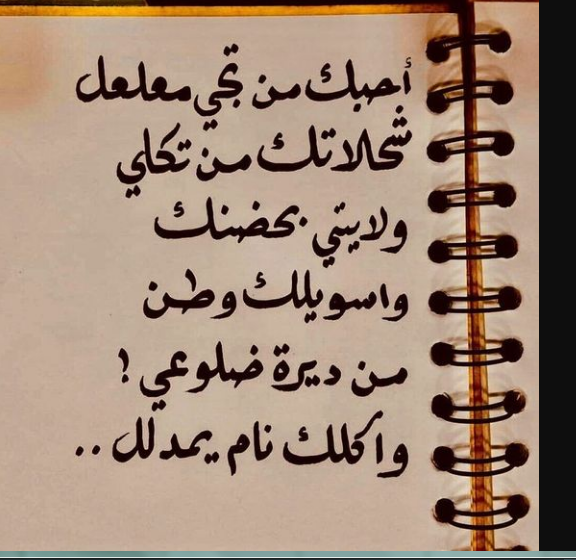 أحبك من تجي معلعل
شحلاتك من تكلي
ولايتي بحضنك
واسويلك وطن
من ديرة ضلوعي !
واكلك نام يمدلل ..